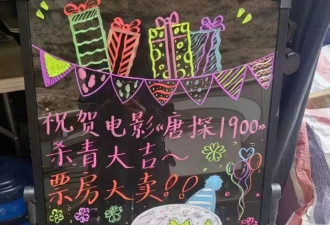 祝贺电影《唐探1900》
杀青大吉～
票房大卖!!